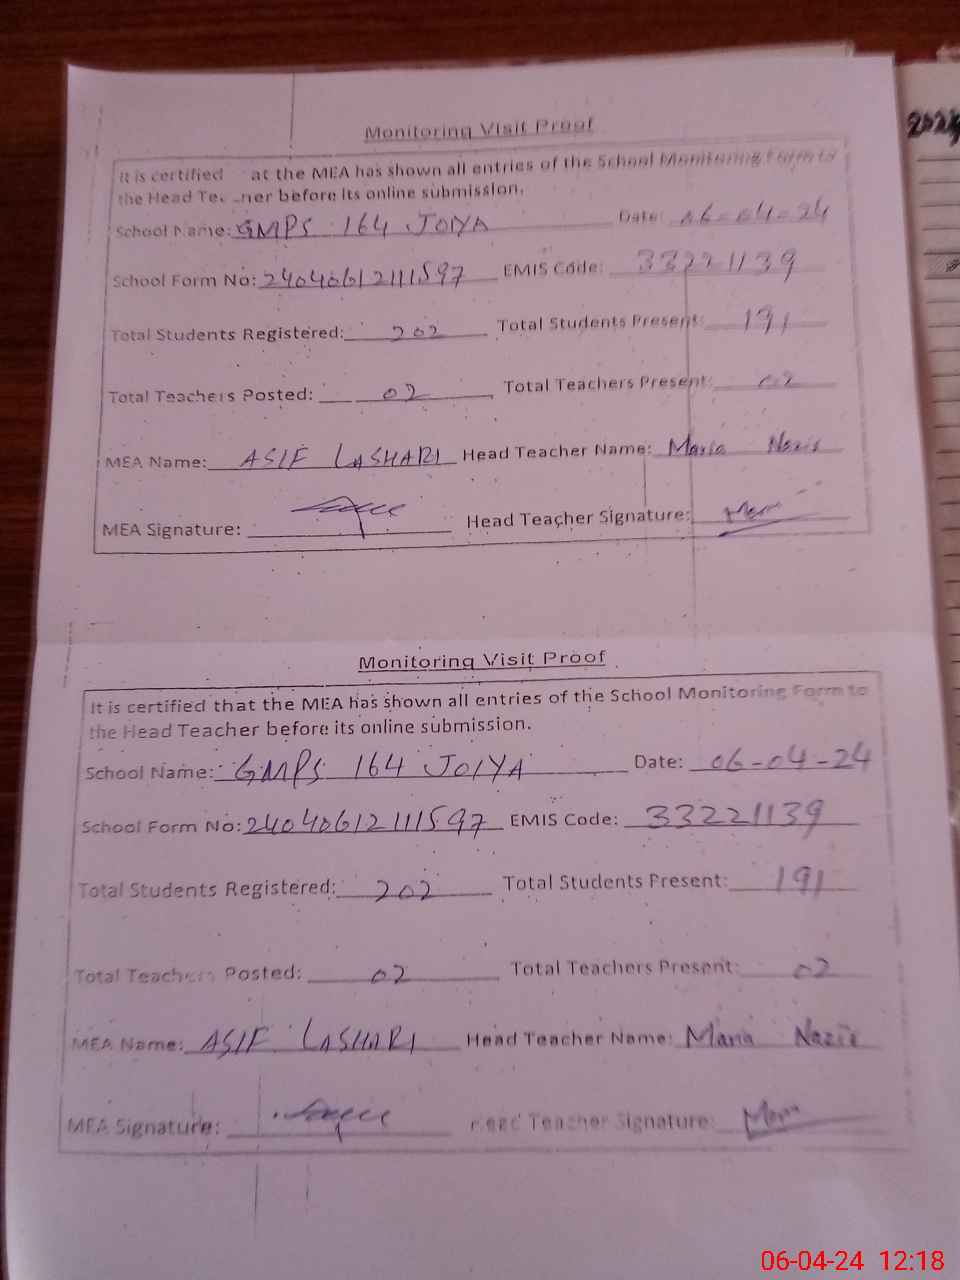 Monitoring Visit Proof
It is certified at the MEA has shown all entries of the School Monitoring Form to
the Head Te ner before its online submission.
School Name: GMPS 164 JOIYA Date: 06-04-24
School Form No: 24040612111597 EMIS Code: 33221139
Total Students Registered: 202 Total Students Present: 191
Total Teachers Posted: 02 Total Teachers Present: 02
MEA Name: ASIF LASHARI Head Teacher Name: Maria Nazir
MEA Signature: Head Teacher Signature:
Monitoring Visit Proof
It is certified that the MEA has shown all entries of the School Monitoring Form to
the Head Teacher before its online submission.
School Name: GMPS 164 JOIYA Date: 06-04-24
School Form No: 24040612111597 EMIS Code: 33221139
Total Students Registered: 202 Total Students Present: 191
Total Teachers Posted: 02 Total Teachers Present: 02
MEA Name: ASIF LASHARI Head Teacher Name: Maria Nazir
MEA Signature: Head Teacher Signature:
06-04-24 12:18